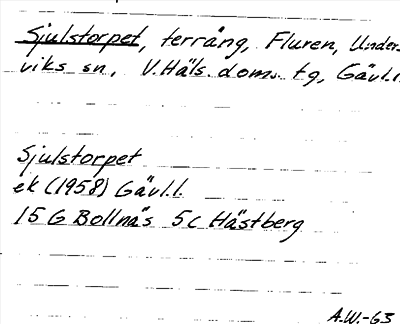 Sjulstorpet, terräng, Fluren, Under-
viks sn, V. Häls. doms. tg, Gävl.l.
Sjulstorpet
ek (1958) Gävl.l.
15 G Bollnäs 5c Hästberg
A.W.-63